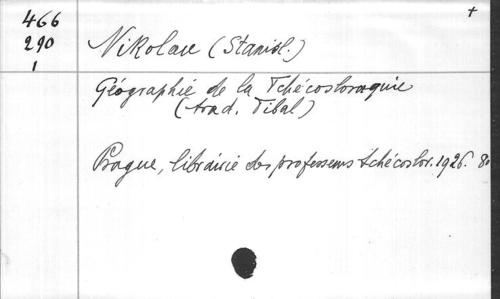 466
290
1
+
Nikolau (Stanisl.)
Géographie de la Tchécoslovaquie
(trad. Tibal)
Prague, librairie des professeurs tchécoslov. 1926. 8o